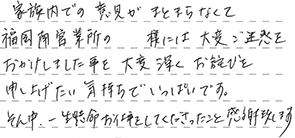 家族内での意見がまとまらなくて
福岡南営業所の 様には大変ご迷惑を
おかけしました事を大変深くお詫びを
申し上げたい気持ちでいっぱいです。
そん中、一生懸命お仕事をしてくださったこと感謝致します